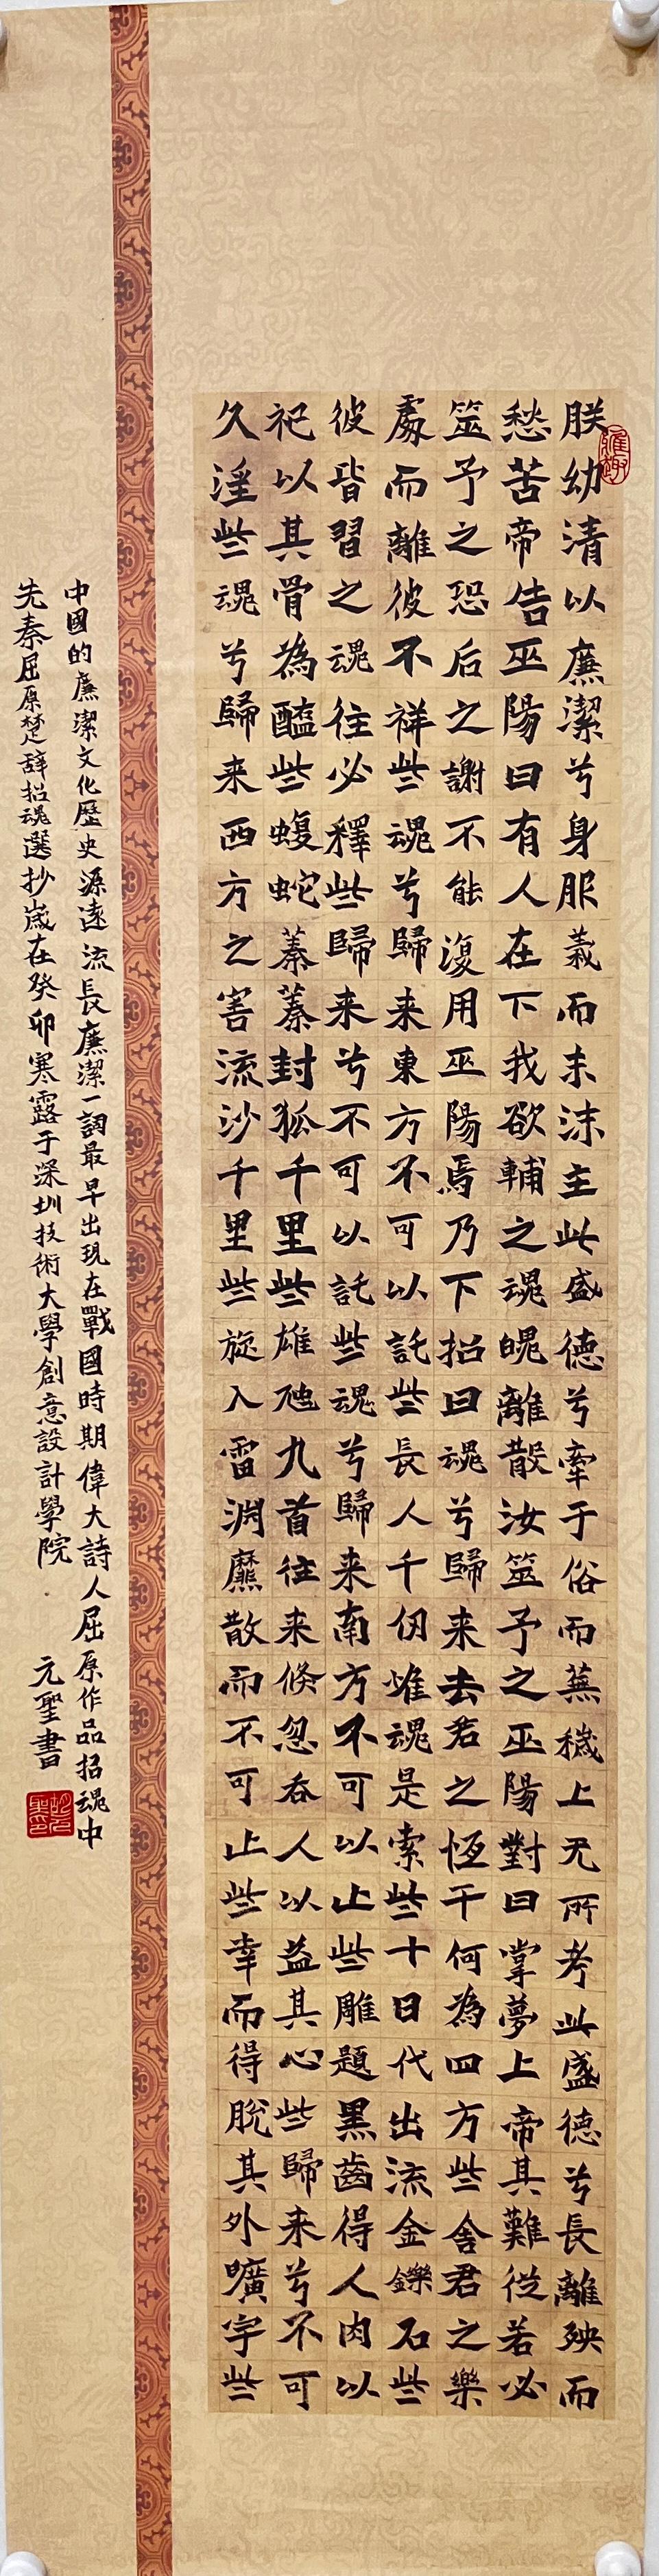 朕幼清以廉潔兮身服義而未沬主此盛德兮牽于俗而蕪穢上无所考此盛德兮長離殃而
愁苦帝告巫陽曰有人在下我欲輔之魂魄離散汝筮予之巫陽對曰掌夢上帝其難從若必
筮予之恐后之謝不能復用巫陽焉乃下招曰魂兮歸来去君之恆干何為四方些舍君之樂
處而離彼不祥些魂兮歸来東方不可以託些長人千仞惟魂是索些十日代出流金鑠石些
彼皆習之魂往必釋些歸来兮不可以託些魂兮歸来南方不可以止些雕題黑齒得人肉以
祀以其骨為醢些蝮蛇蓁蓁封狐千里些雄虺九首往来倏忽吞人以益其心些歸来兮不可
久淫些魂兮歸来西方之害流沙千里些旋入雷淵靡散而不可止些幸而得脫其外曠宇些
中國的廉潔文化歷史源遠流長廉潔一詞最早出現在戰國時期偉大詩人屈原作品招魂中
先秦屈原楚辞招魂選抄歲在癸卯寒露于深圳技術大學創意設計學院 元聖書
雅趣